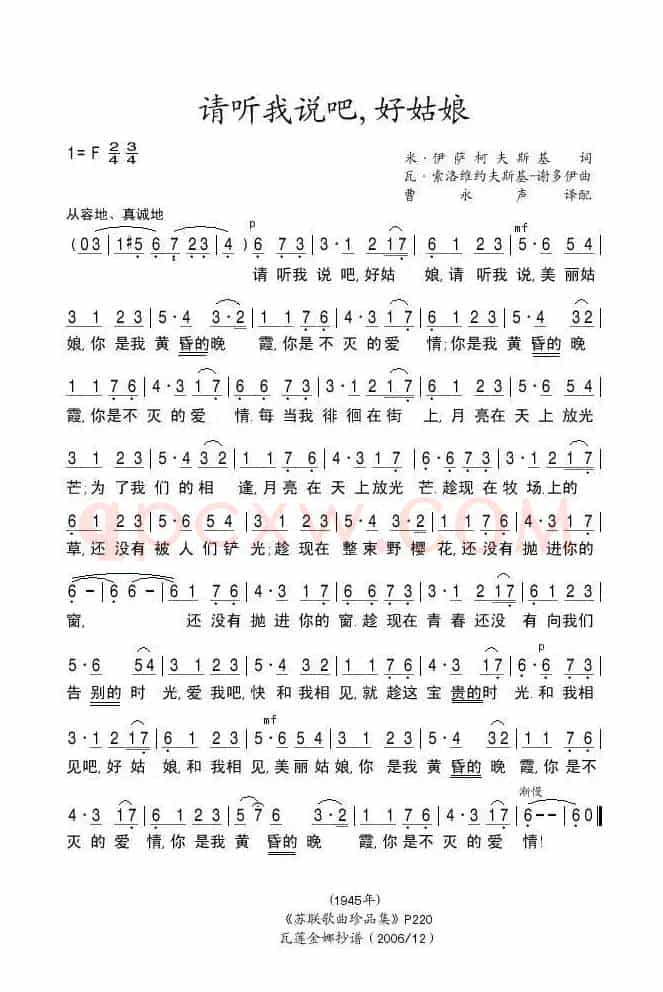 请听我说吧,好姑娘
1= F 2/4 3/4
米·伊萨柯夫斯基 词
瓦·索洛维约夫斯基-谢多伊曲
曹永声 译配
从容地、真诚地
p
mf
(03 | 1#5 6 7 23 | 4 ) 6 73 | 3·1 2 17 | 6 1 23 | 5·6 54 |
请听我 说吧,好姑 娘,请听我 说,美丽姑
3 1 23 | 5·4 3·2 | 1 1 76 | 4·3 17 | 6 1 23 | 5·4 32 |
娘,你是我 黄昏的晚 霞,你是不 灭的爱 情;你是我 黄昏的晚
1 1 76 | 4·3 17 | 6 6 73 | 3·1 2 17 | 6 1 23 | 5·6 54 |
霞,你是不 灭的爱 情.每当我 徘徊在街 上,月亮在 天上放光
3 1 23 | 5·4 32 | 1 1 76 | 4·3 17 | 6·6 73 | 3·1 217 |
芒;为了我 们的相 逢,月亮在 天上放光 芒.趁现在 牧场上的
6 1 23 | 5·6 54 | 3 1 23 | 5·4 3·2 | 1 1 76 | 4·3 17 |
草,还没有 被人们铲 光;趁现在 整束野樱 花,还没有 抛进你的
6 – | 6 – | 61 76 | 4·3 17 | 6 6 73 | 3·1 2 17 | 6 1 23 |
窗, 还没有 抛进你的 窗.趁现在 青春还没 有向我们
5·6 54 | 3 1 23 | 5·4 32 | 1 1 76 | 4·3 17 | 6·6 73 |
p
告别的时 光,爱我吧,快和我相 见,就趁这 宝贵的时 光.和我相
3·1 2 17 | 6 1 23 | 5·6 54 | 3 1 23 | 5·4 32 | 1 1 76 |
mf
见吧,好姑 娘,和我相 见,美丽姑 娘,你是我 黄昏的晚 霞,你是不
4·3 17 | 6 1 23 | 5 76 3 2 | 1 1 76 | 4·3 17 | 6 – | 60 ‖
渐慢
灭的爱 情,你是我 黄昏的晚 霞,你是不 灭的爱 情!
(1945年)
《苏联歌曲珍品集》P220
瓦莲金娜抄谱(2006/12)